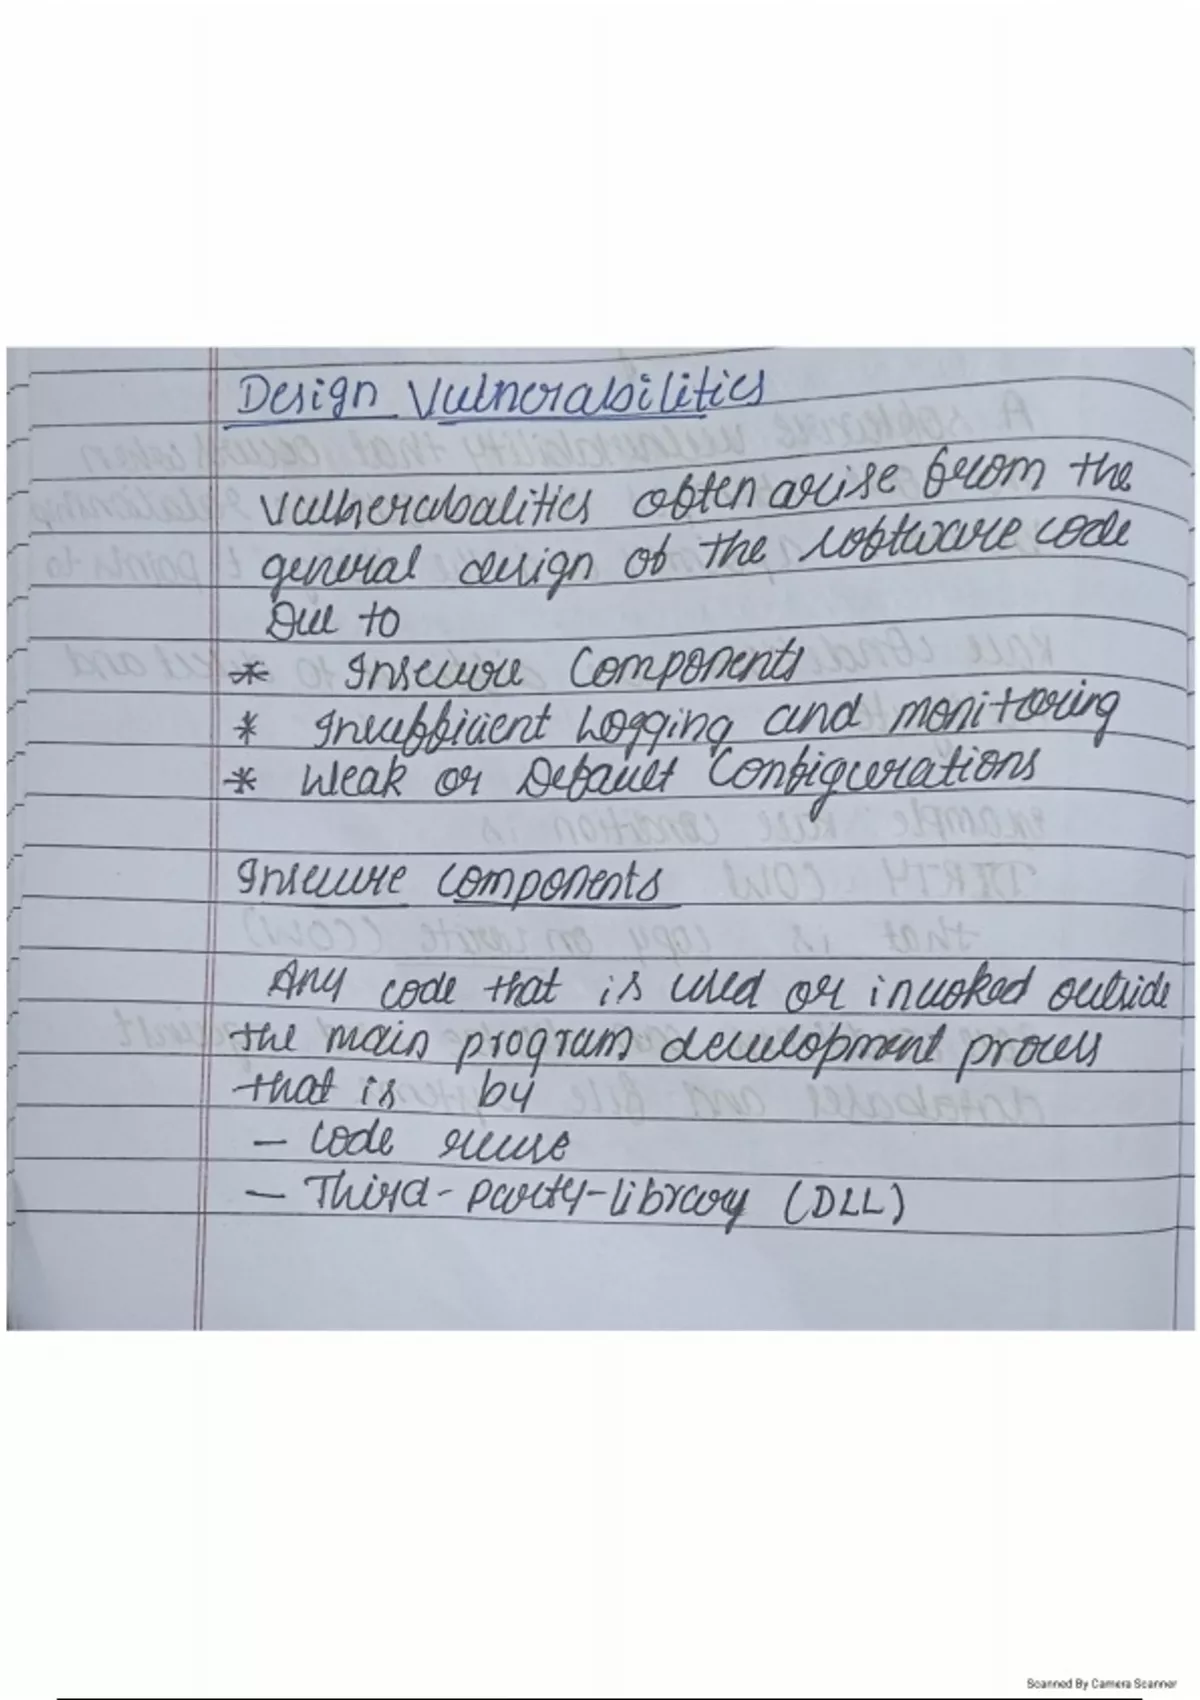 Design Vulnerabilities
Vulnerabalities often arise from the
general design of the software code
Due to
* Insecure Components
* Insufficient Logging and monitoring
* Weak or Default Configurations
Insecure components
Any code that is used or invoked outside
the main program development process
that is by
- Code reuse
- Third-party-library (DLL)
Scanned By Camera Scanner